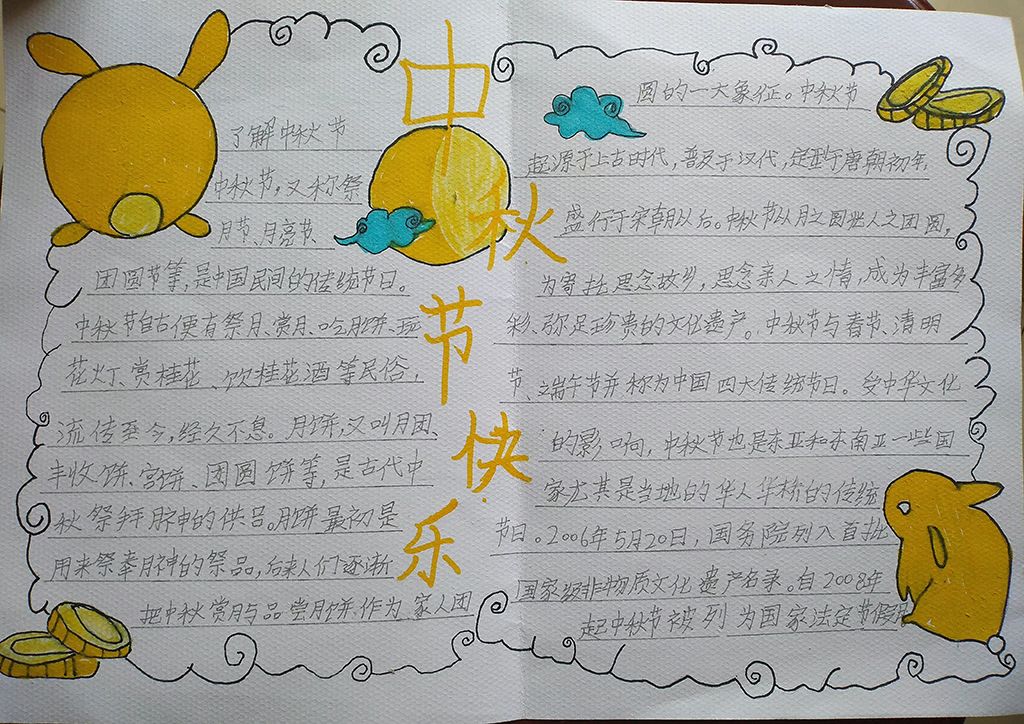 中秋节快乐
了解中秋节
中秋节，又称祭
月节、月亮节、
团圆节等，是中国民间的传统节日。
中秋节自古便有祭月、赏月、吃月饼、玩
花灯、赏桂花、饮桂花酒等民俗，
流传至今，经久不息。月饼，又叫月团、
丰收饼、宫饼、团圆饼等，是古代中
秋祭拜月神的供品。月饼最初是
用来祭奉月神的祭品，后来人们逐渐
把中秋赏月与品尝月饼作为家人团
圆的一大象征。中秋节
起源于上古时代，普及于汉代，定型于唐朝初年，
盛行于宋朝以后。中秋节以月之圆兆人之团圆，
为寄托思念故乡，思念亲人之情，成为丰富多
彩、弥足珍贵的文化遗产。中秋节与春节、清明
节、端午节并称为中国四大传统节日。受中华文化
的影响，中秋节也是东亚和东南亚一些国
家尤其是当地的华人华侨的传统
节日。2006年5月20日，国务院列入首批
国家级非物质文化遗产名录。自2008年
起中秋节被列为国家法定节假日